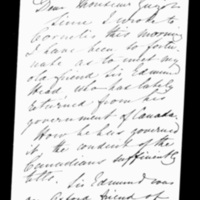 Dear Monsieur Guizot
Since I wrote to
this morning
I have been so fortu-
nate as to meet my
old friend Sir Edmund
Head who has lately
returned from his
government of Canada.
How he has governed
it, the conduct of the
Canadians sufficiently
tells. Sir Edmund was
an Oxford friend of